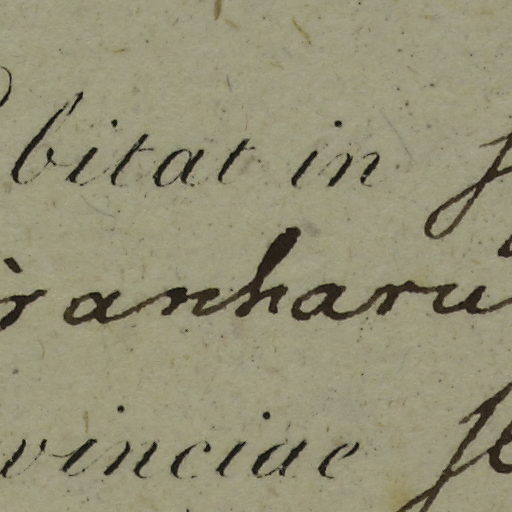 bitat in
ranharu
vinciae